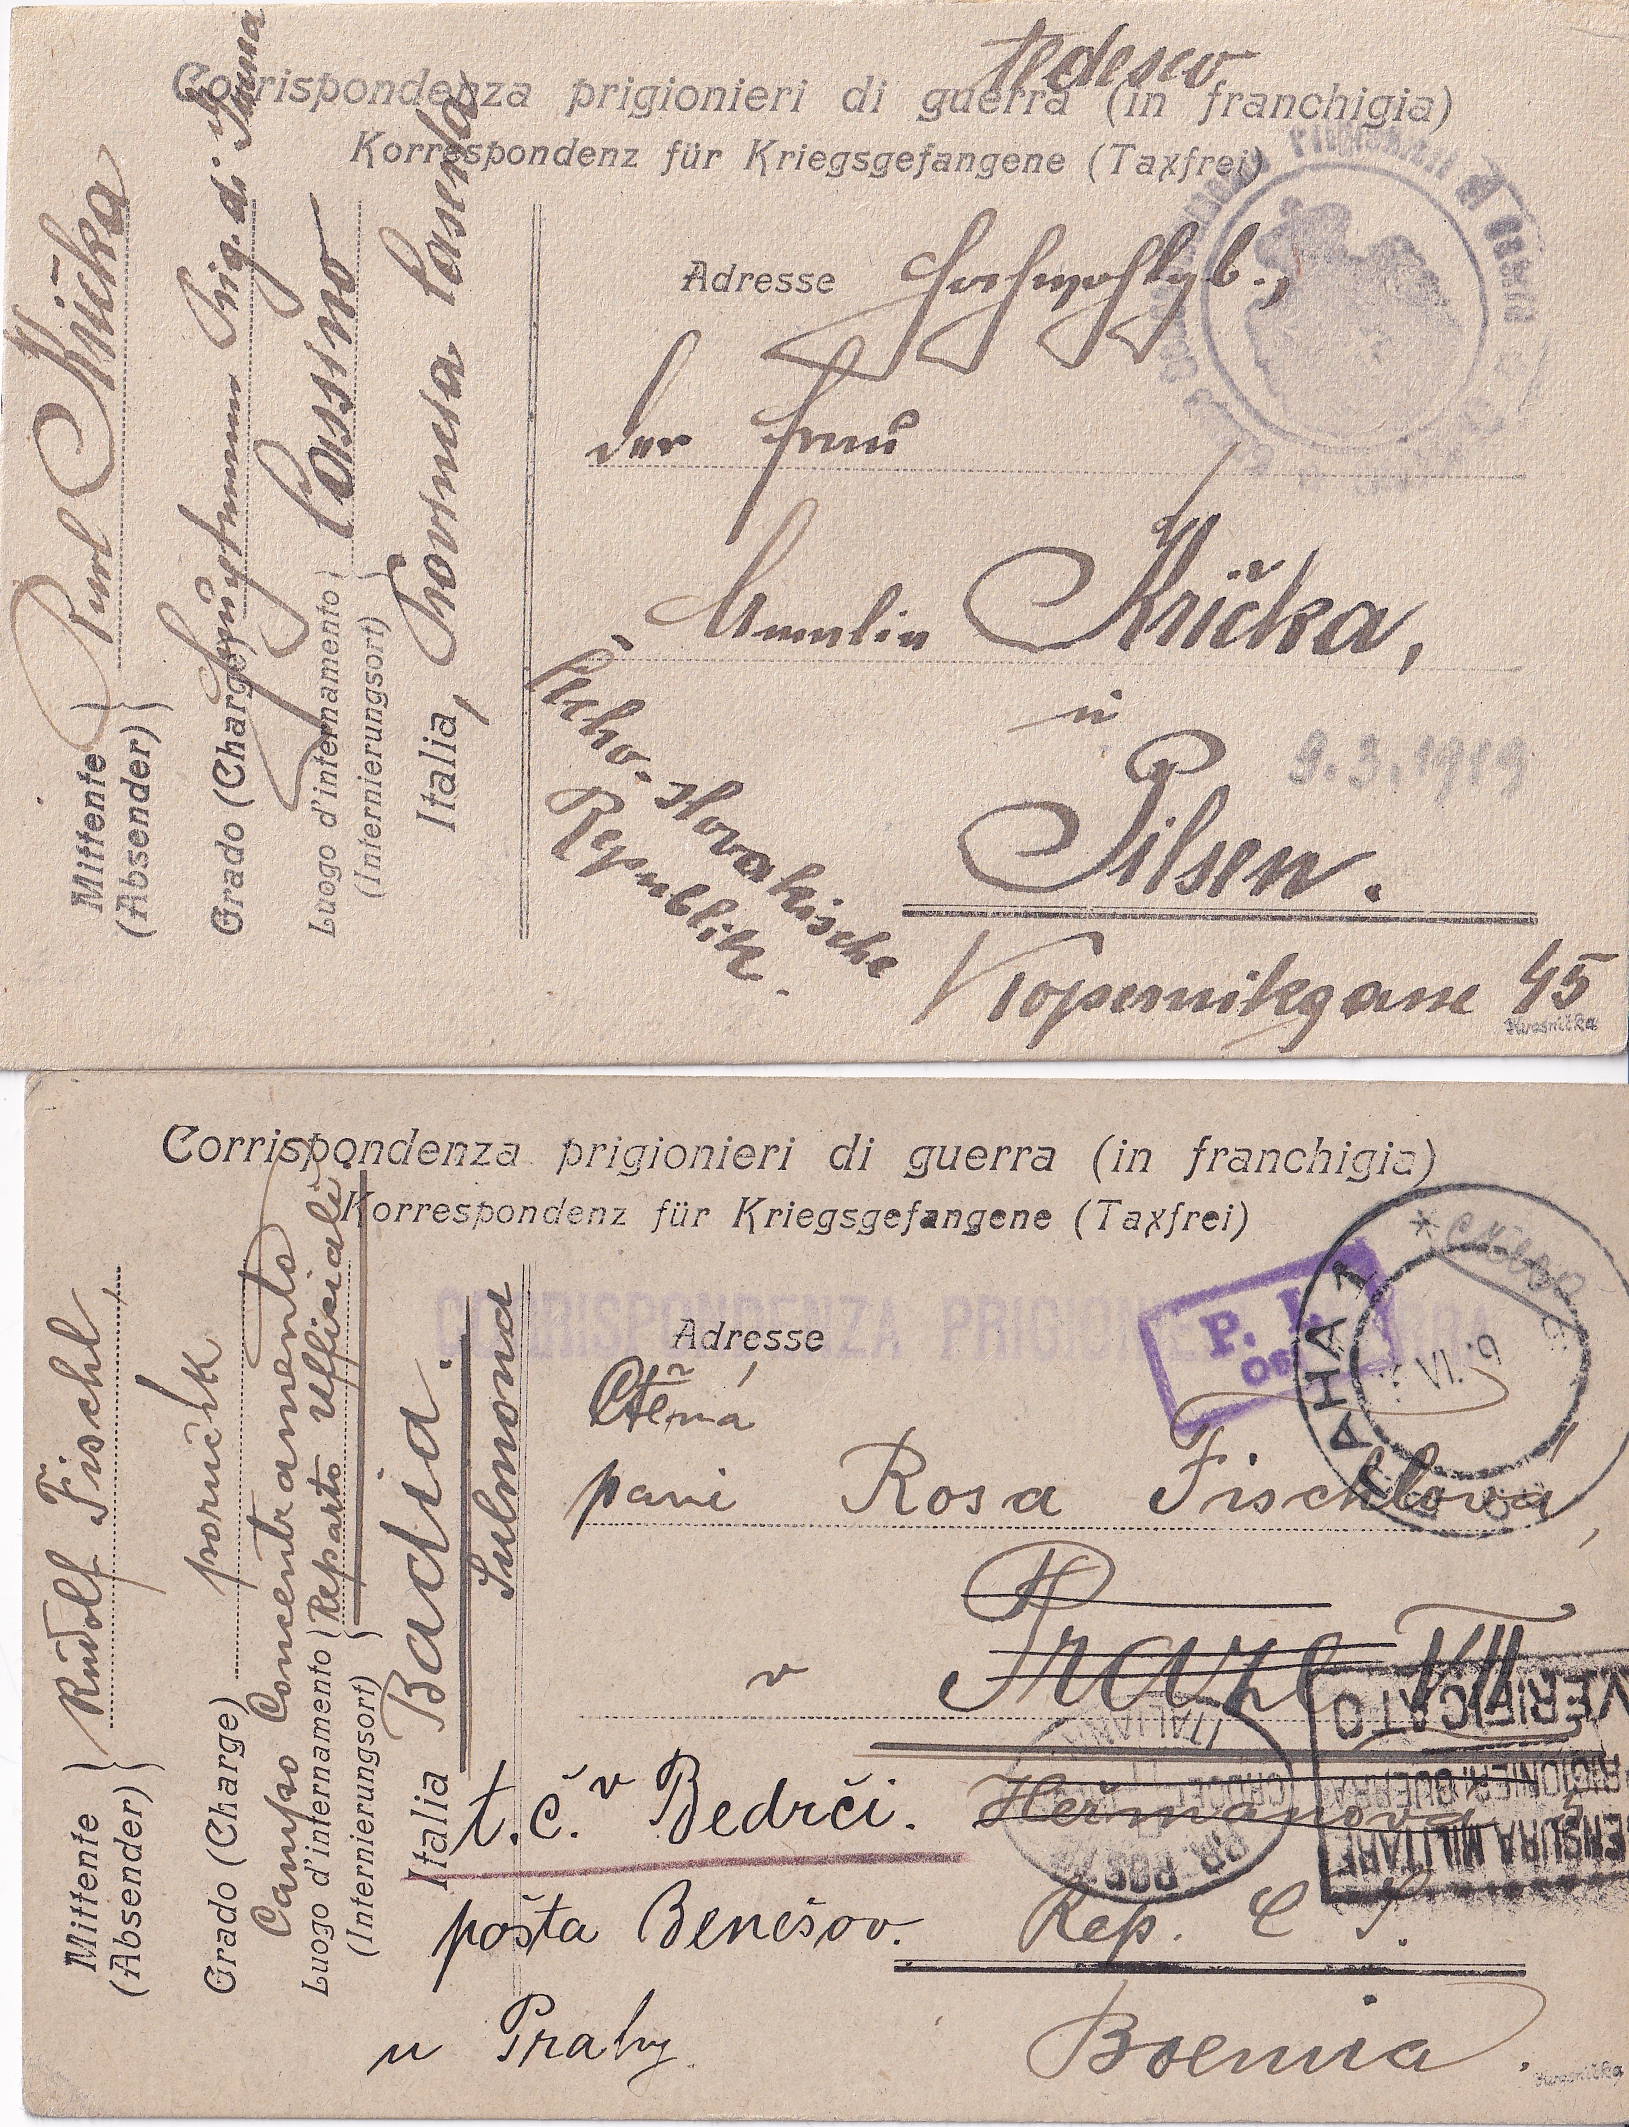 tedesco
Corrispondenza prigionieri di guerra (in franchigia)
Korrespondenz für Kriegsgefangene (Taxfrei)
Mittente
(Absender)
Karl Křička
Grado (Charge)
Hauptmann Prig. di
Luogo d'internamento
(Internierungsort)
Cassino
Italia, Provincia Caserta
Adresse Hochwohlgb.,
der Frau
Amalie Křička,
in
9.3.1919
Pilsen.
Čecho-slovakische
Republik.
Kopernikgasse 45
Kvasnička
Corrispondenza prigionieri di guerra (in franchigia)
Korrespondenz für Kriegsgefangene (Taxfrei)
CORRISPONDENZA PRIGIONIERI GUERRA
Mittente
(Absender)
Rudolf Fischl,
Grado (Charge)
poručík
Campo Concentramento
Luogo d'internamento
(Internierungsort)
(Reparto Ufficiali)
Italia Badia.
Sulmona
Adresse
P.
PRAHA 1
VI. 19
Ctěná
paní Rosa Fischlová,
v Praze VII
t.č. v Bedrči. Heřmanova
pošta Benešov. Rep. C S.
u Prahy
Boemia.
VERIFICATO
PRIGIONIERI GUERRA
CENSURA MILITARE
ITALIANA
CROCE
PR. POSTA
Kvasnička